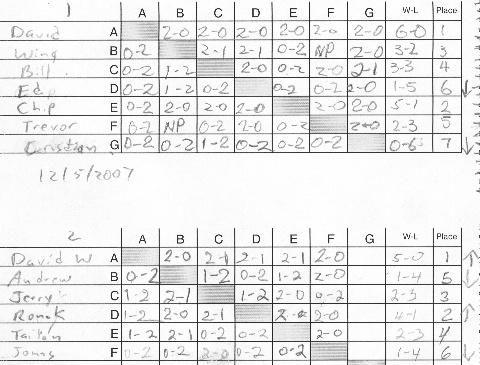 1 A B C D E F G W-L Place
David A 2-0 2-0 2-0 2-0 2-0 2-0 6-0 1
Wing B 0-2 2-1 2-1 0-2 NP 2-0 3-2 3
Bill C 0-2 1-2 2-0 0-2 2-0 2-1 3-3 4
Ed D 0-2 1-2 0-2 0-2 0-2 2-0 1-5 6 ↓
Chip E 0-2 2-0 2-0 2-0 2-0 2-0 5-1 2
Trevor F 0-2 NP 0-2 2-0 0-2 2-0 2-3 5
Christian G 0-2 0-2 1-2 0-2 0-2 0-2 0-6 7 ↓
12/5/2007
2 A B C D E F G W-L Place
David W A 2-0 2-1 2-1 2-1 2-0 5-0 1 ↑
Andrew B 0-2 1-2 0-2 1-2 2-0 1-4 5 ↓
Jerry C 1-2 2-1 1-2 2-0 0-2 2-3 3
Ronak D 1-2 2-0 2-1 2-0 2-0 4-1 2 ↑
E 1-2 2-1 0-2 0-2 2-0 2-3 4
Jonas F 0-2 0-2 2-0 0-2 0-2 1-4 6 ↓